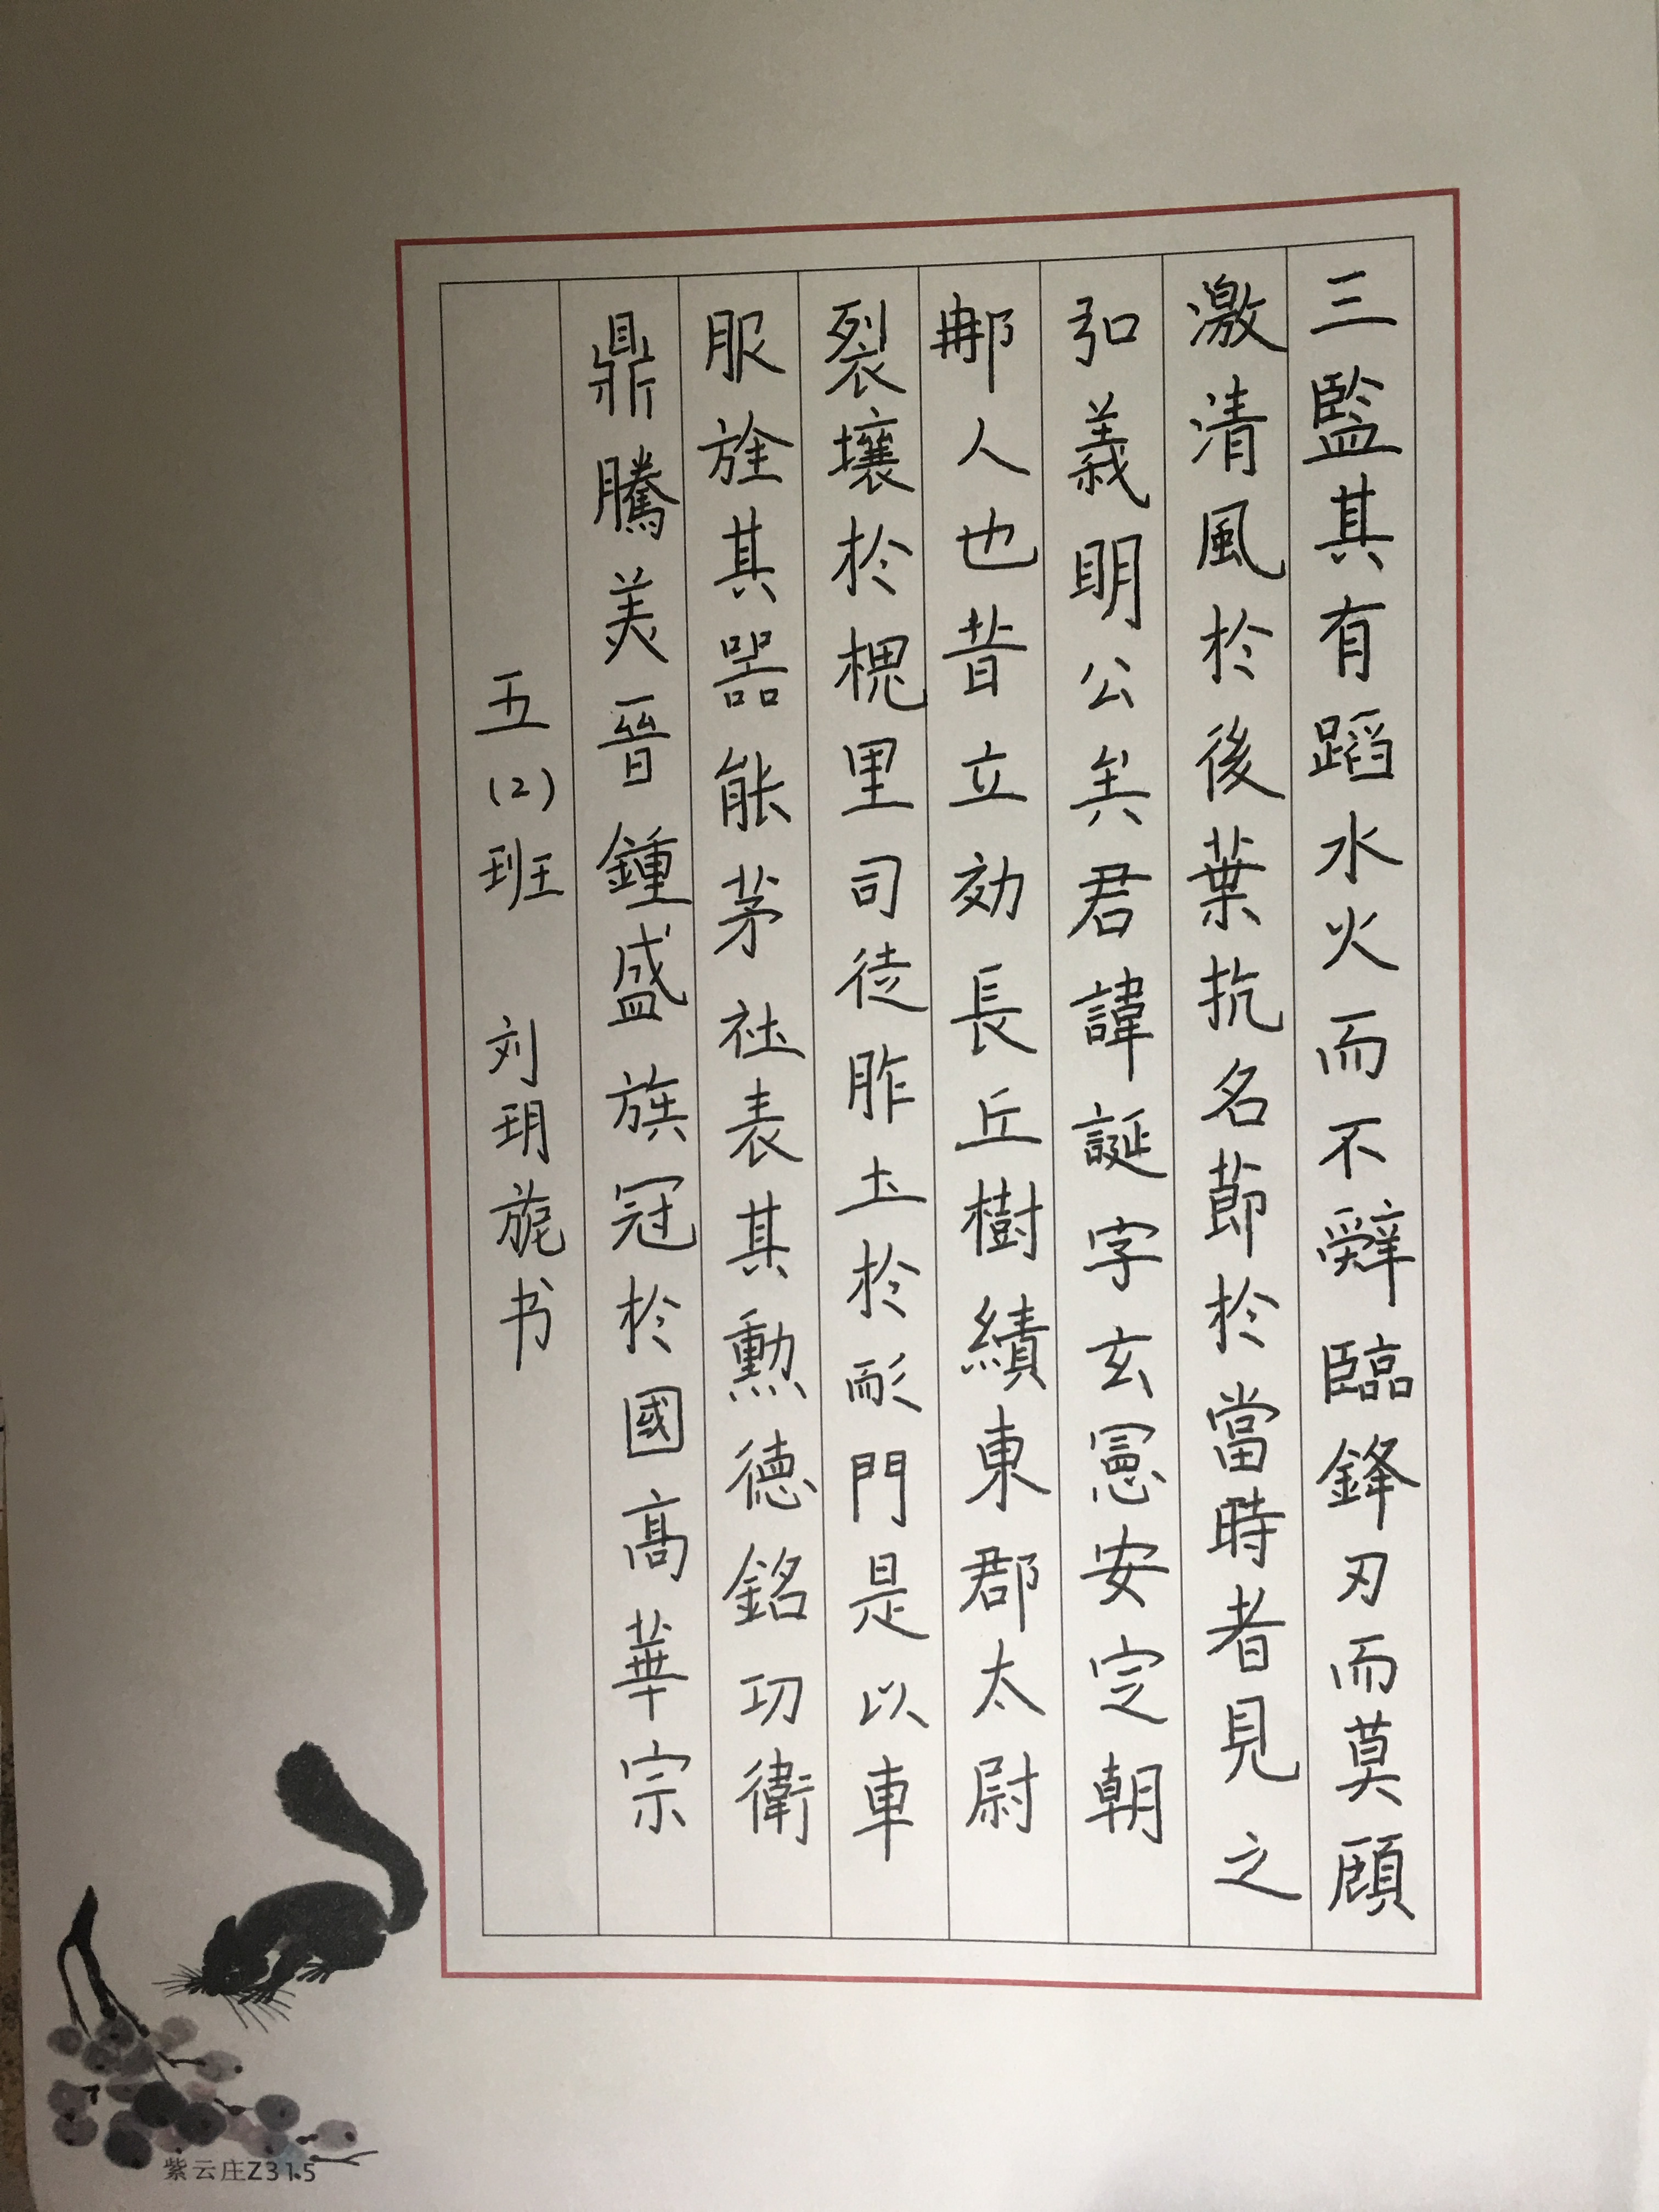 三監其有蹈水火而不辭臨鋒刃而莫顧
激清風於後葉抗名節於當時者見之
弘義明公矣君諱誕字玄憲安定朝
那人也昔立効長丘樹績東郡太尉
裂壤於槐里司徒胙土於耏門是以車
服旌其器能茅社表其勲德銘功衛
鼎騰美晉鍾盛族冠於國高華宗
五(2)班 刘玥旎书
紫云庄Z315